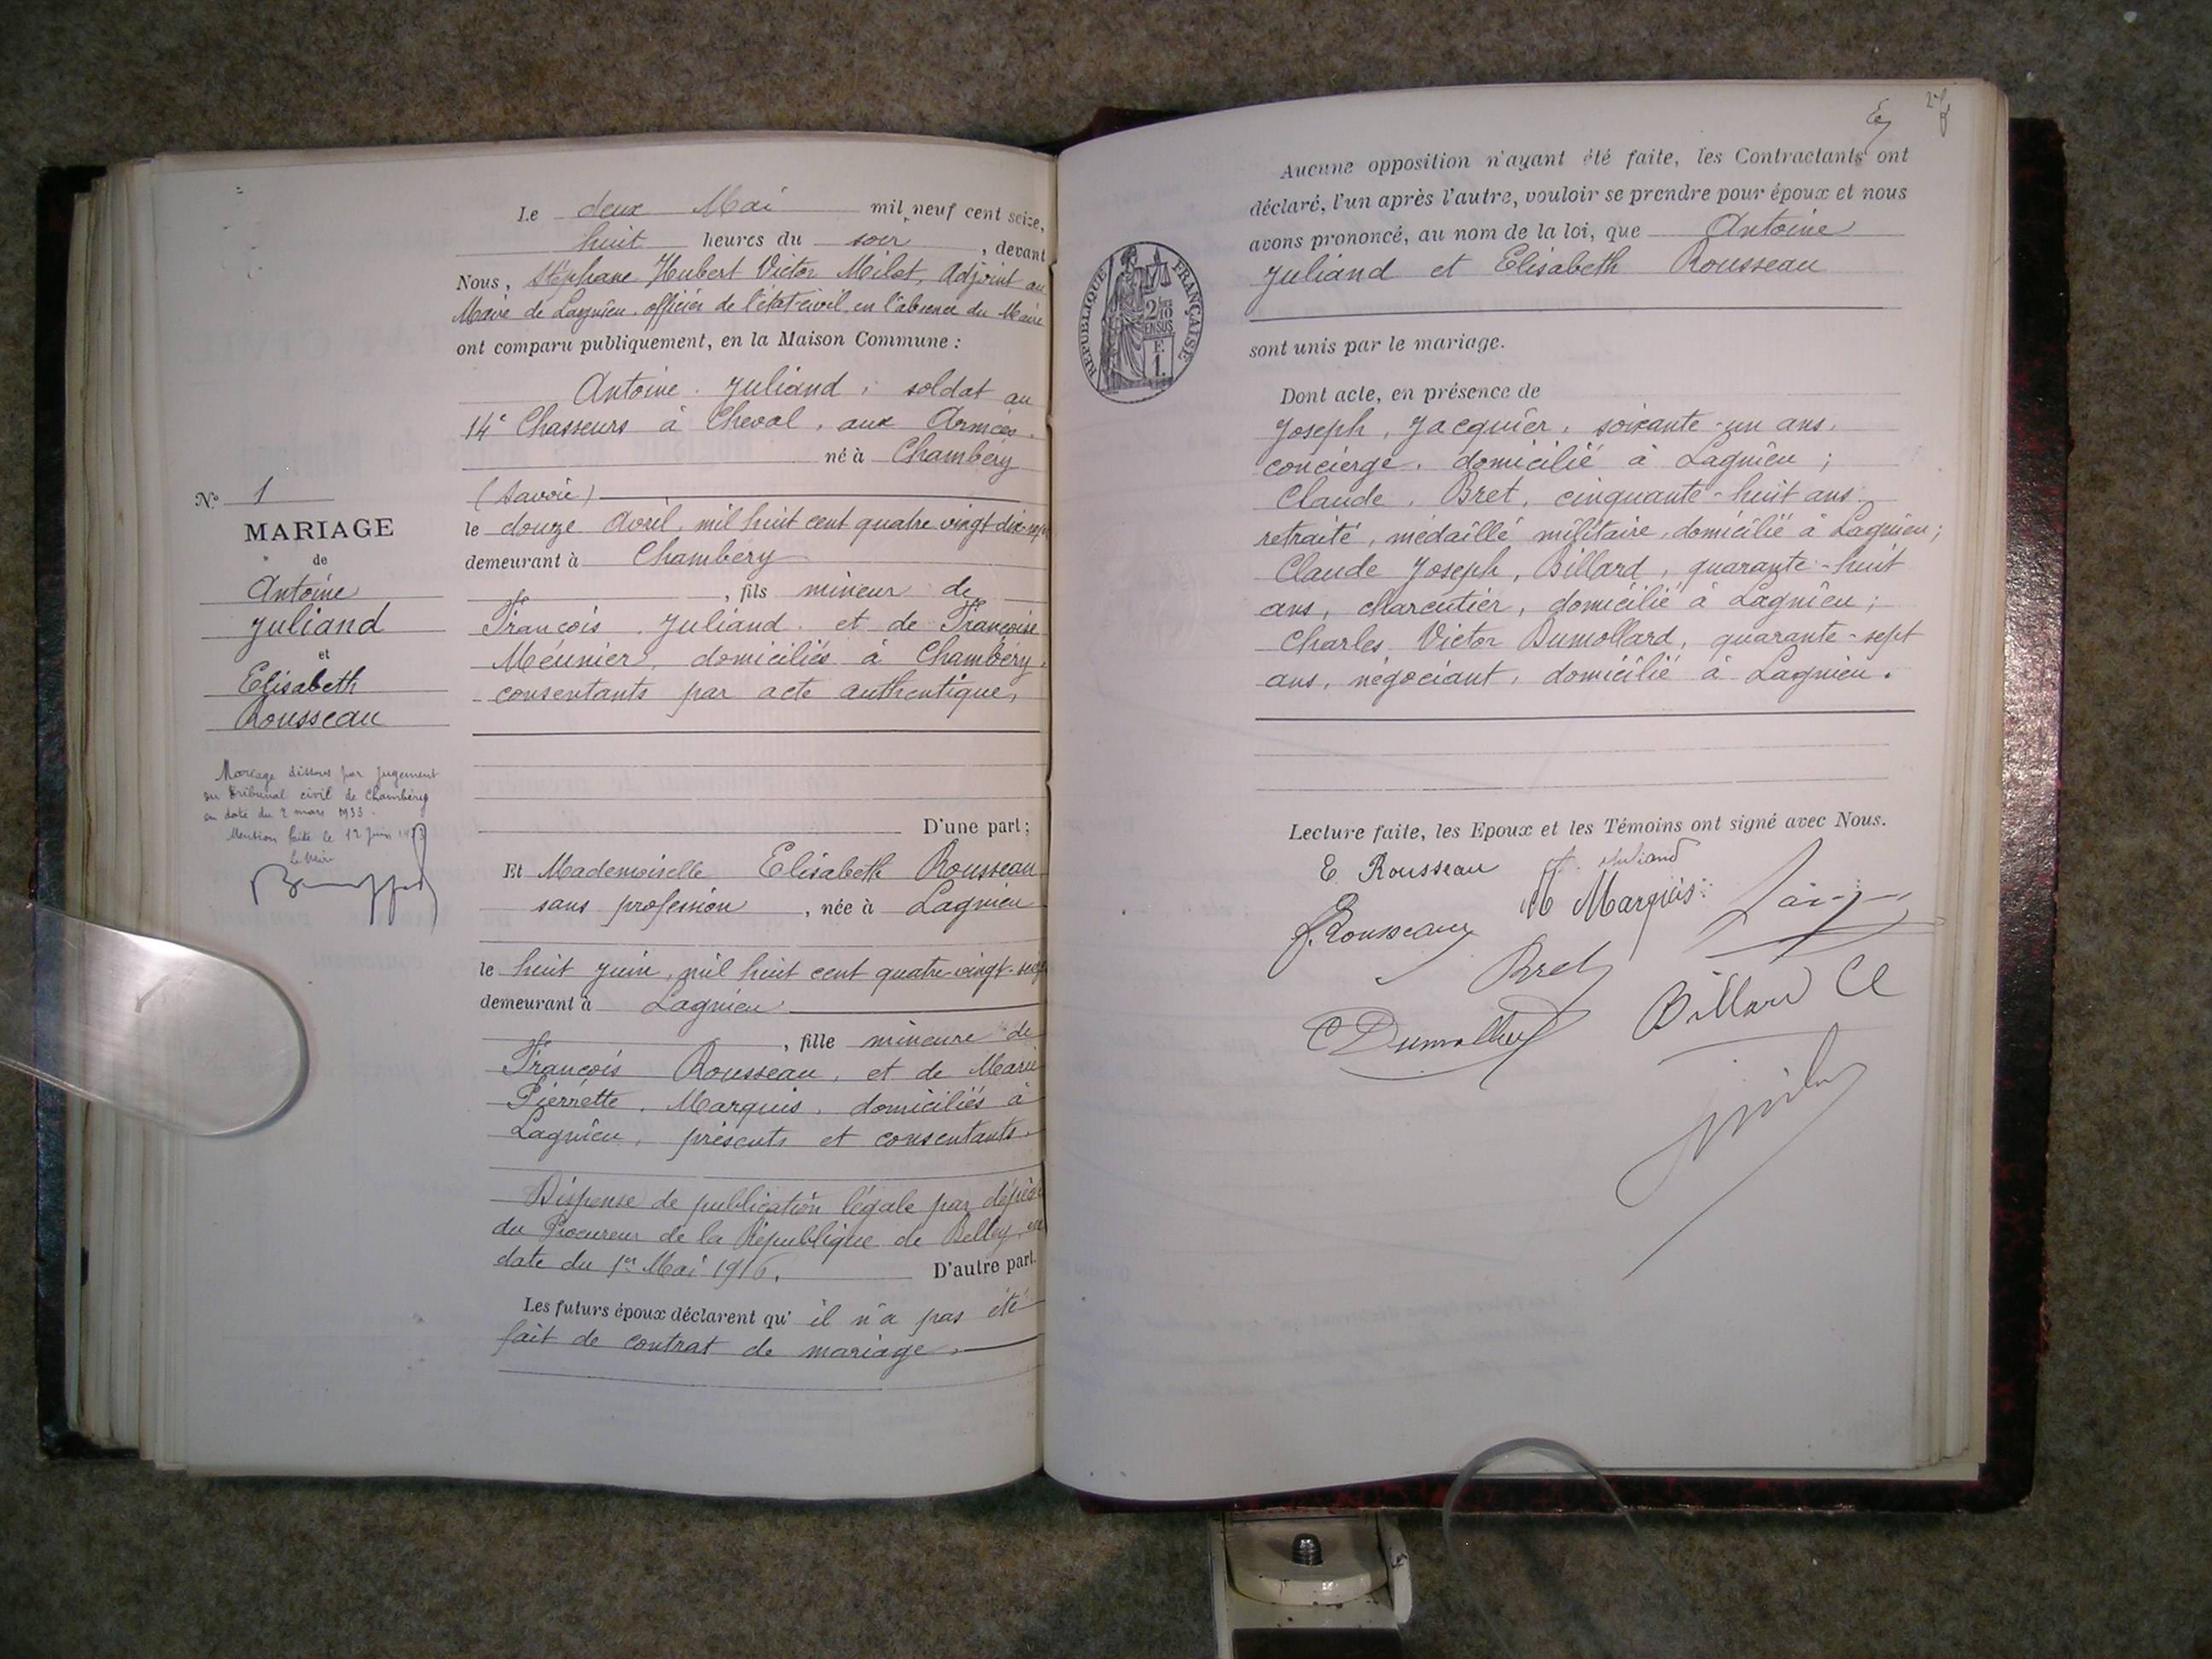 Le deux Mai mil neuf cent seize,
huit heures du soir, devant
Nous, Stéphane Hubert Victor Milet, Adjoint au
Maire de Lagnieu, officier de l'état-civil, en l'absence du Maire
ont comparu publiquement, en la Maison Commune :
Antoine Juliand, soldat au
14e Chasseurs à Cheval, aux Armées,
né à Chambéry
(Savoie)
le douze Avril, mil huit cent quatre vingt dix-sept
demeurant à Chambéry
, fils mineur de
François Juliand et de Françoise
Meunier, domiciliés à Chambéry,
consentants par acte authentique,
D'une part ;
Et Mademoiselle Elisabeth Rousseau
sans profession, née à Lagnieu
le huit Juin, mil huit cent quatre-vingt-
demeurant à Lagnieu
, fille mineure de
François Rousseau, et de Marie
Pierrette, Marquis, domiciliés à
Lagnieu, présents et consentants.
Dispense de publication légale par
du Procureur de la République de Belley, en
date du 1er Mai 1916.
D'autre part.
Les futurs époux déclarent qu'il n'a pas été
fait de contrat de mariage.
No 1
MARIAGE
de
Antoine
Juliand
et
Elisabeth
Rousseau
Mariage dissous par jugement
du Tribunal civil de Chambéry
en date du 2 mars 1933.
Mention faite le 12 juin 1933
Le Maire
Aucune opposition n'ayant été faite, les Contractants ont
déclaré, l'un après l'autre, vouloir se prendre pour époux et nous
avons prononcé, au nom de la loi, que Antoine
Juliand et Elisabeth Rousseau
sont unis par le mariage.
RÉPUBLIQUE FRANÇAISE
2/10
EN SUS
E.
1.
Dont acte, en présence de
Joseph, Jacquier, soixante-un ans,
concierge, domicilié à Lagnieu ;
Claude, Bret, cinquante-huit ans
retraité, médaillé militaire, domicilié à Lagnieu ;
Claude Joseph, Billard, quarante-huit
ans, charcutier, domicilié à Lagnieu ;
Charles Victor Dumollard, quarante-sept
ans, négociant, domicilié à Lagnieu.
Lecture faite, les Epoux et les Témoins ont signé avec Nous.
E Rousseau
A. Juliand
M Marquis
f. Rousseau
Bret
C Dumollard
Billard Cl